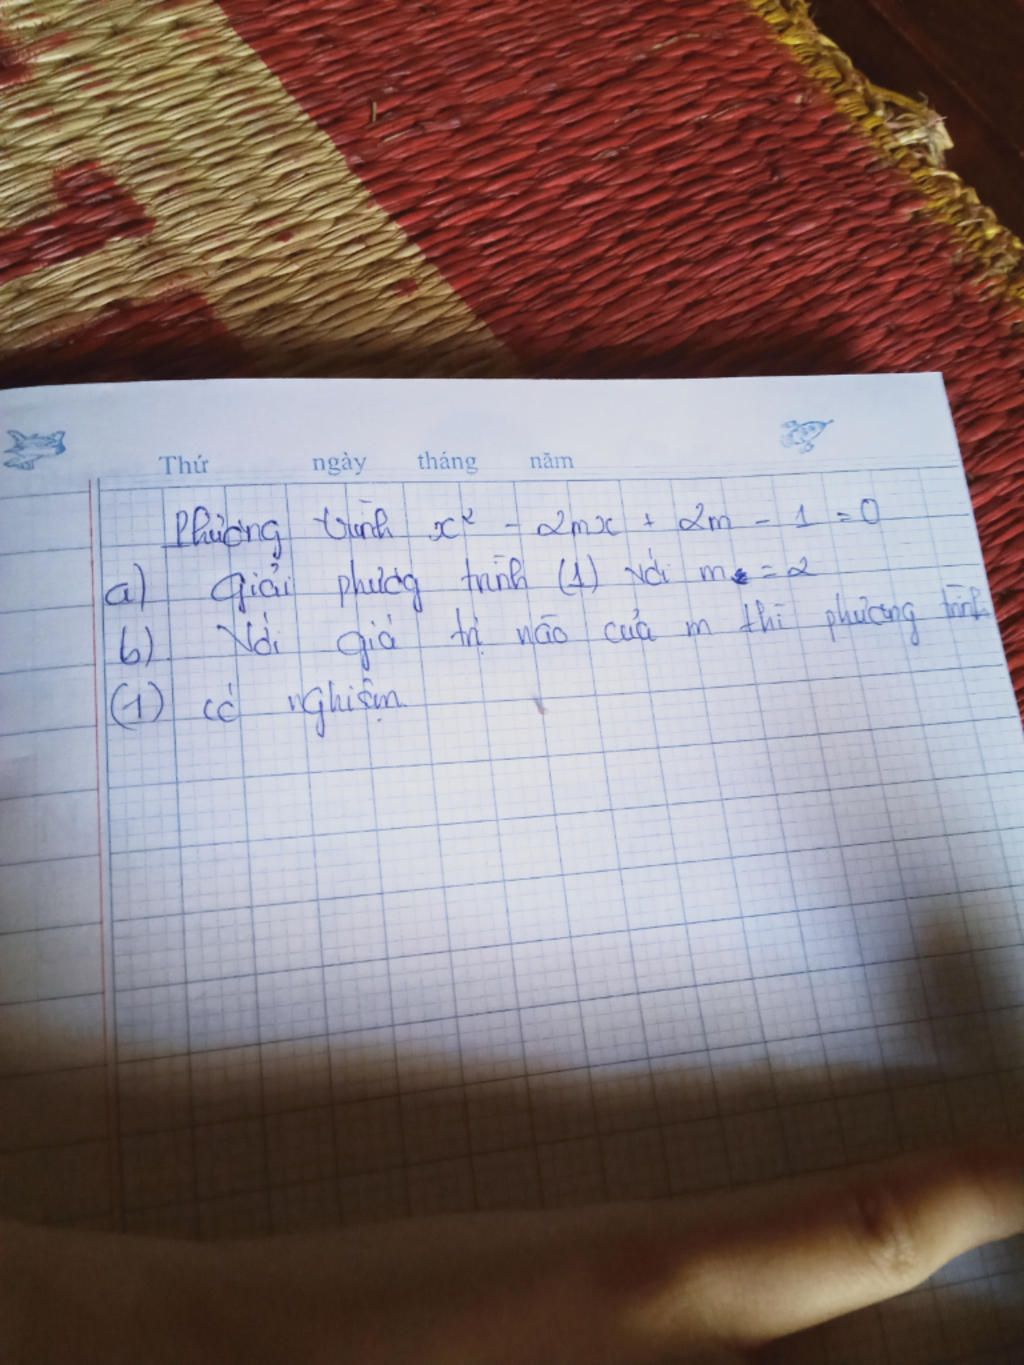 Thứ ngày tháng năm
Phương trình x² - 2mx + 2m - 1 = 0
a) Giải phươg trình (1) với m = 2
b) Với giá trị nào của m thì phương trình
(1) có nghiệm